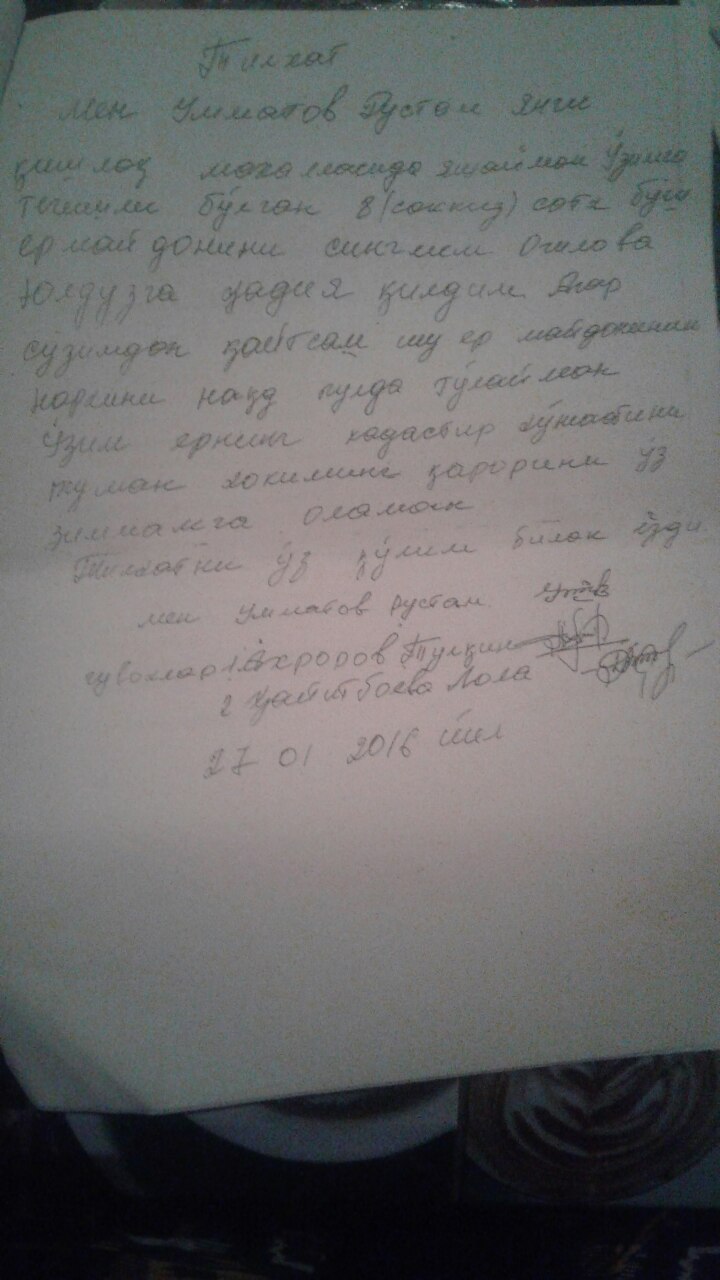 Тилхат
Мен Умматов Рустам янги
қишлоқ махалласида яшайман Ўзимга
тегишли бўлган 8 (саккиз) сотх бўш
ер майдонини синглим Очилова
Юлдузга ҳадия қилдим Агар
сўзимдан қайтсам шу ер майдонини
нархини нақд пулда тўлайман
Ўзим ернинг кадастир хўжатини
туман хокиминг қарорини ўз
зиммамга оламан
Тилхатни ўз қўлим билан ёзди
мен Умматов Рустам
гувохлар 1 Ахроров Тулқин
2 Ҳайитбоева Лола
27 01 2016 йил